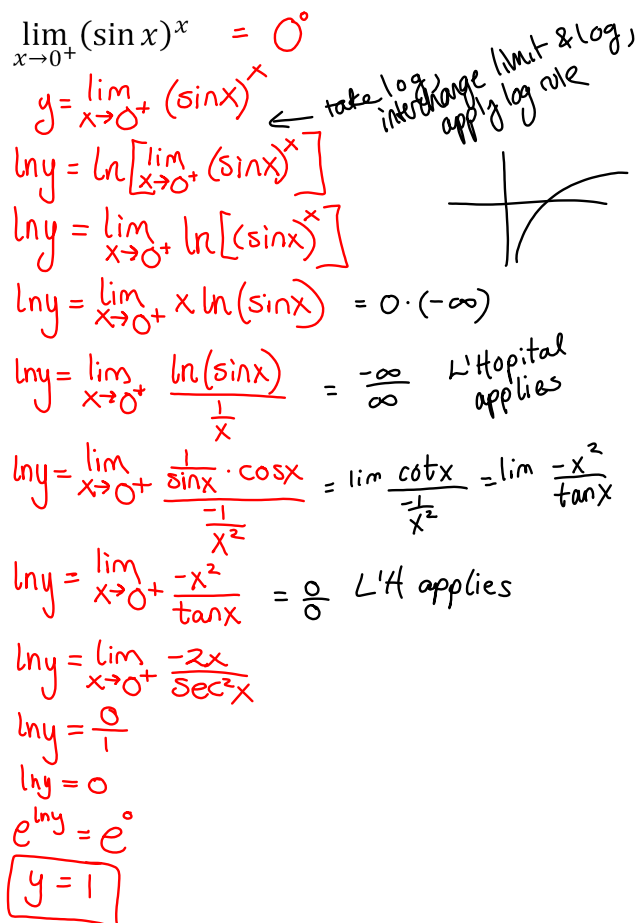 lim x→0⁺ (sin x)ˣ = 0⁰
y = lim x→0⁺ (sinx)ˣ
← take log, interchange limit & log, apply log rule
lny = ln[lim x→0⁺ (sinx)ˣ]
lny = lim x→0⁺ ln[(sinx)ˣ]
lny = lim x→0⁺ x ln(sinx) = 0·(-∞)
lny = lim x→0⁺ ln(sinx) / (1/x) = -∞/∞ L'Hopital applies
lny = lim x→0⁺ (1/sinx · cosx) / (-1/x²) = lim cotx / (-1/x²) = lim -x²/tanx
lny = lim x→0⁺ -x²/tanx = 0/0 L'H applies
lny = lim x→0⁺ -2x/sec²x
lny = 0/1
lny = 0
e^lny = e⁰
y = 1